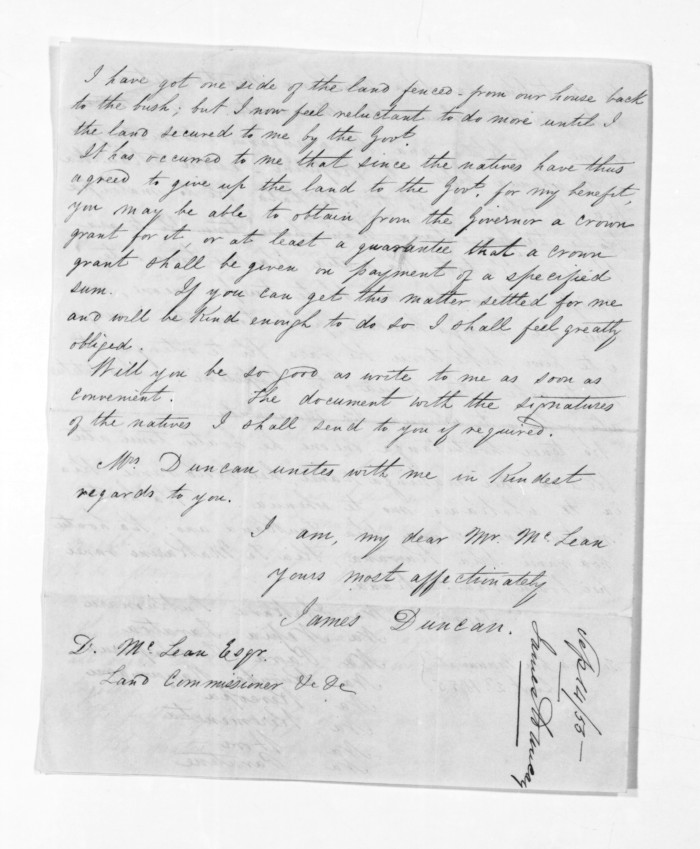 I have got one side of the land fenced - from our house back
to the bush; but I now feel reluctant to do more until I
the land secured to me by the Govt.
It has occurred to me that since the natives have thus
agreed to give up the land to the Govt. for my benefit,
you may be able to obtain from the Governor a crown
grant for it, or at least a guarantee that a crown
grant shall be given on payment of a specified
sum. If you can get this matter settled for me
and will be kind enough to do so I shall feel greatly
obliged.
Will you be so good as write to me as soon as
convenient. The document with the signatures
of the natives I shall send to you if required.
Mrs Duncan unites with me in kindest
regards to you.
I am, my dear Mr. McLean
yours most affectionately
James Duncan.
D. McLean Esqr.
Land Commissioner &c &c
James Duncan